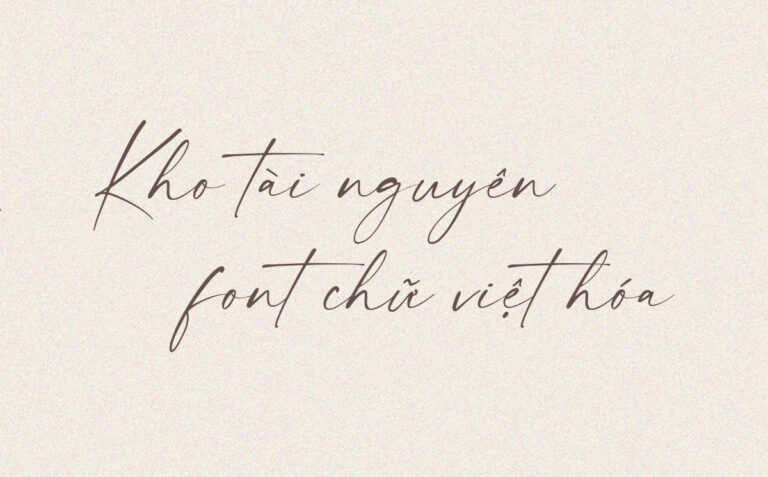 Kho tài nguyên
font chữ việt hóa